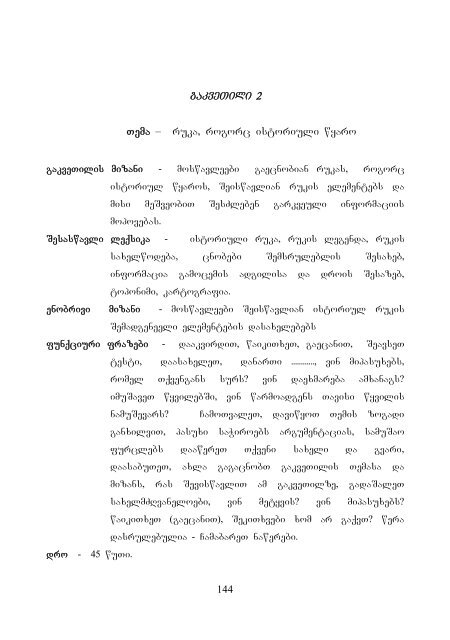 გაკვეთილი 2
თემა – რუკა, როგორც ისტორიული წყარო
გაკვეთილის მიზანი - მოსწავლეები გაეცნობიან რუკას, როგორც
ისტორიულ წყაროს, შეისწავლიან რუკის ელემენტებს და
მისი მეშვეობით შეძლებენ გარკვეული ინფორმაციის
მოპოვებას.
შესასწავლი ლექსიკა - ისტორიული რუკა, რუკის ლეგენდა, რუკის
სახელწოდება, ცნობები შემსრულებლის შესახებ,
ინფორმაცია გამოცემის ადგილისა და დროის შესახებ,
ტოპონიმი, კარტოგრაფია.
ენობრივი მიზანი - მოსწავლეები შეისწავლიან ისტორიულ რუკის
შემადგენელი ელემენტების დასახელებებს
ფუნქციური ფრაზები - დააკვირდით, წაიკითხეთ, გაეცანით, შეავსეთ
ტესტი, დაასახელეთ, დანართი ..........., ვინ მიპასუხებს,
რომელ თქვენგანს სურს? ვინ დაეხმარება ამხანაგს?
იმუშავეთ წყვილებში, ვინ წარმოადგენს თავისი წყვილის
ნამუშევარს? ჩამოთვალეთ, დავიწყოთ თემის ზოგადი
განხილვით, პასუხი საჭიროებს არგუმენტაციას, სამუშაო
ფურცლებს დააწერეთ თქვენი სახელი და გვარი,
დაასაბუთეთ, ახლა გაგაცნობთ გაკვეთილის თემასა და
მიზანს, რას შევისწავლით ამ გაკვეთილზე, გადაშალეთ
სახელმძღვანელოები, ვინ მეტყვის? ვინ მიპასუხებს?
წაიკითხეთ (გაეცანით), შეკითხვები ხომ არ გაქვთ? წერა
დასრულებულია - ჩამაბარეთ ნაწერები.
დრო - 45 წუთი.
144